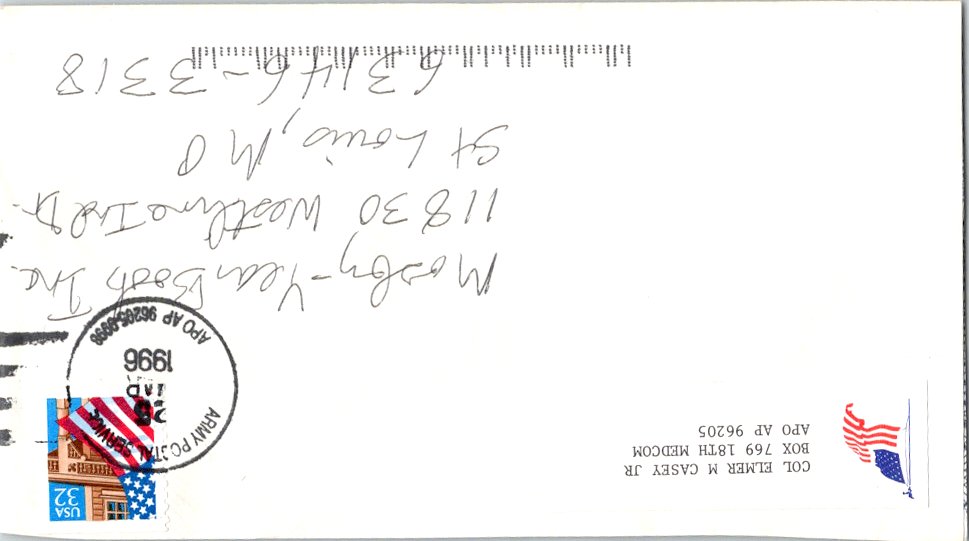 COL ELMER M CASEY JR
BOX 769 18TH MEDCOM
APO AP 96205
USA
32
ARMY POSTAL SERVICE
25
1996
APO AP 96205-9998
Mosby-Year Book Inc.
11830 Westline Ind Dr.
St Louis, MO
63146-3318